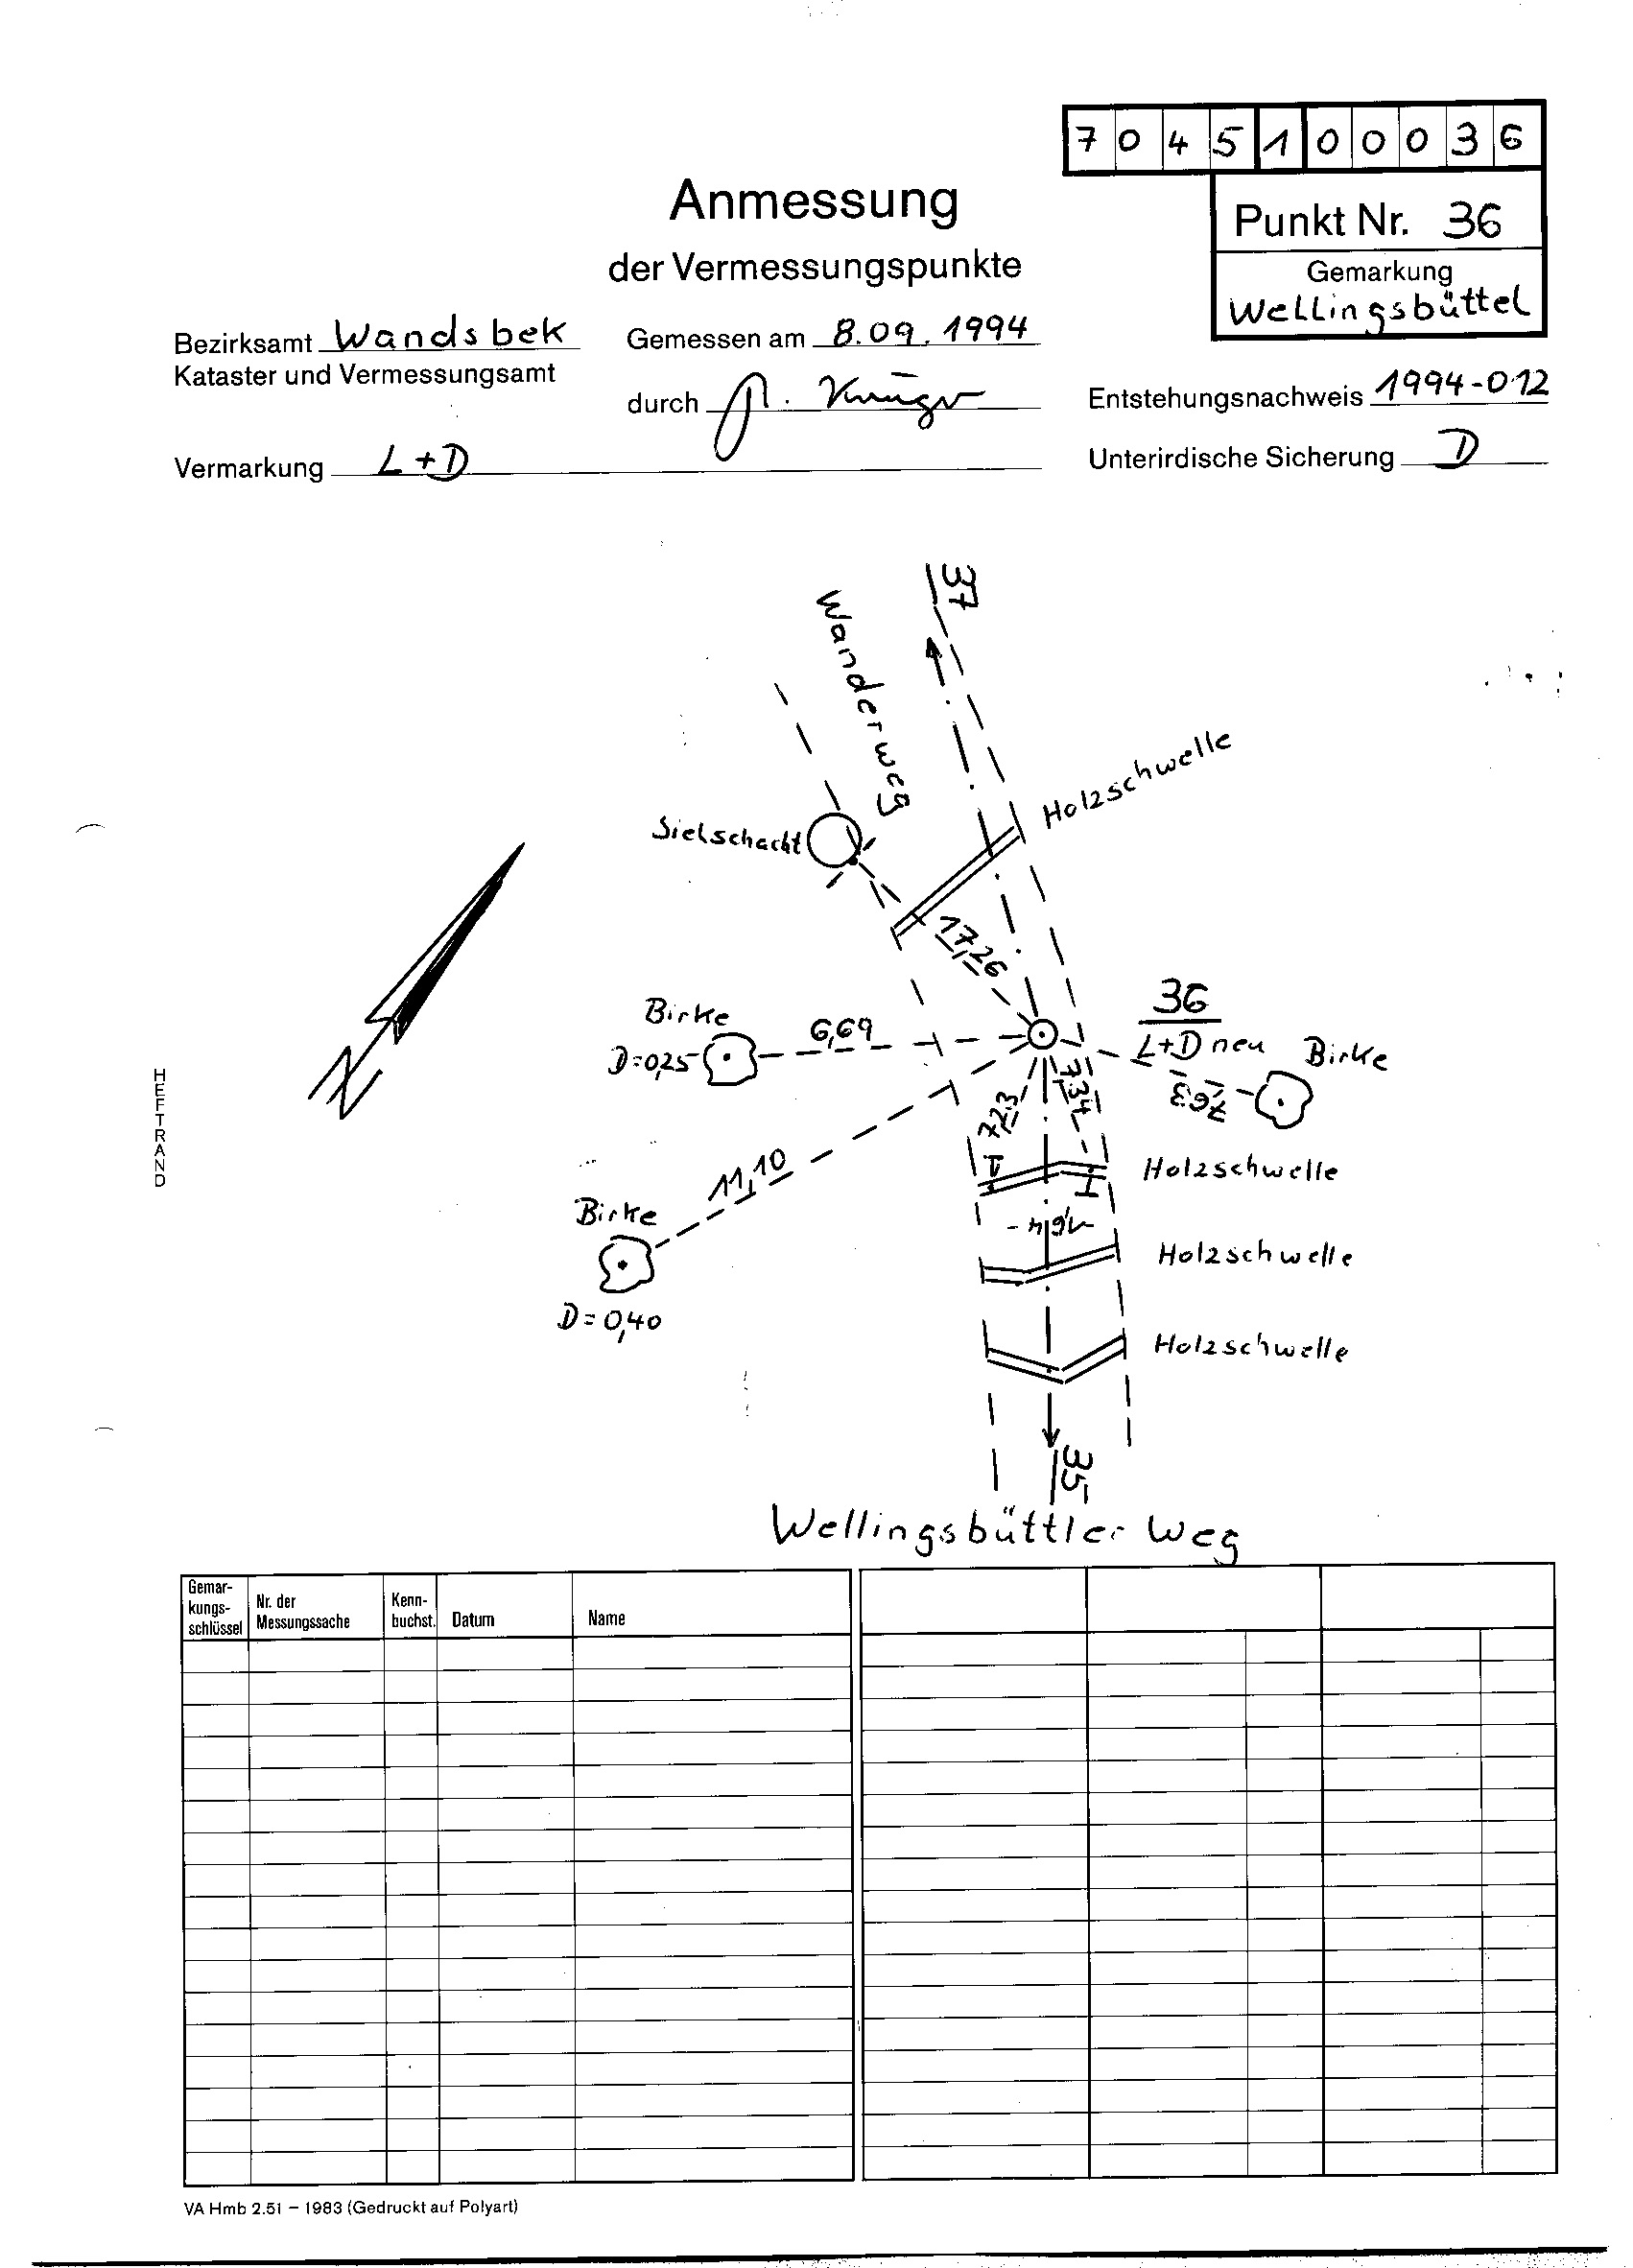 7045100036
Anmessung
der Vermessungspunkte
Punkt Nr. 36
Gemarkung
Wellingsbüttel
Bezirksamt Wandsbek
Kataster und Vermessungsamt
Gemessen am 8.09.1994
durch
Entstehungsnachweis 1994-012
Vermarkung L+D
Unterirdische Sicherung D
37
Wanderweg
Holzschwelle
Sielschacht
17,26
36
L+D neu
Birke
Birke
6,69
D=0,25
7,63
7,34
7,23
HEFTRAND
11,10
Holzschwelle
Birke
1,64
Holzschwelle
D=0,40
Holzschwelle
35
Wellingsbüttler Weg
Gemar-
kungs-
schlüssel
Nr. der
Messungssache
Kenn-
buchst.
Datum
Name
VA Hmb 2.51 – 1983 (Gedruckt auf Polyart)